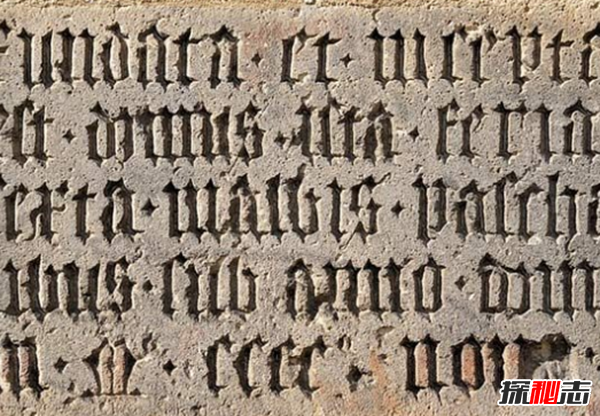 fundata · et · incept
est · domus · ista · feria
sexta · malvis · pascha
ibus · sub · anno · dom
M · cccc · non
探秘志